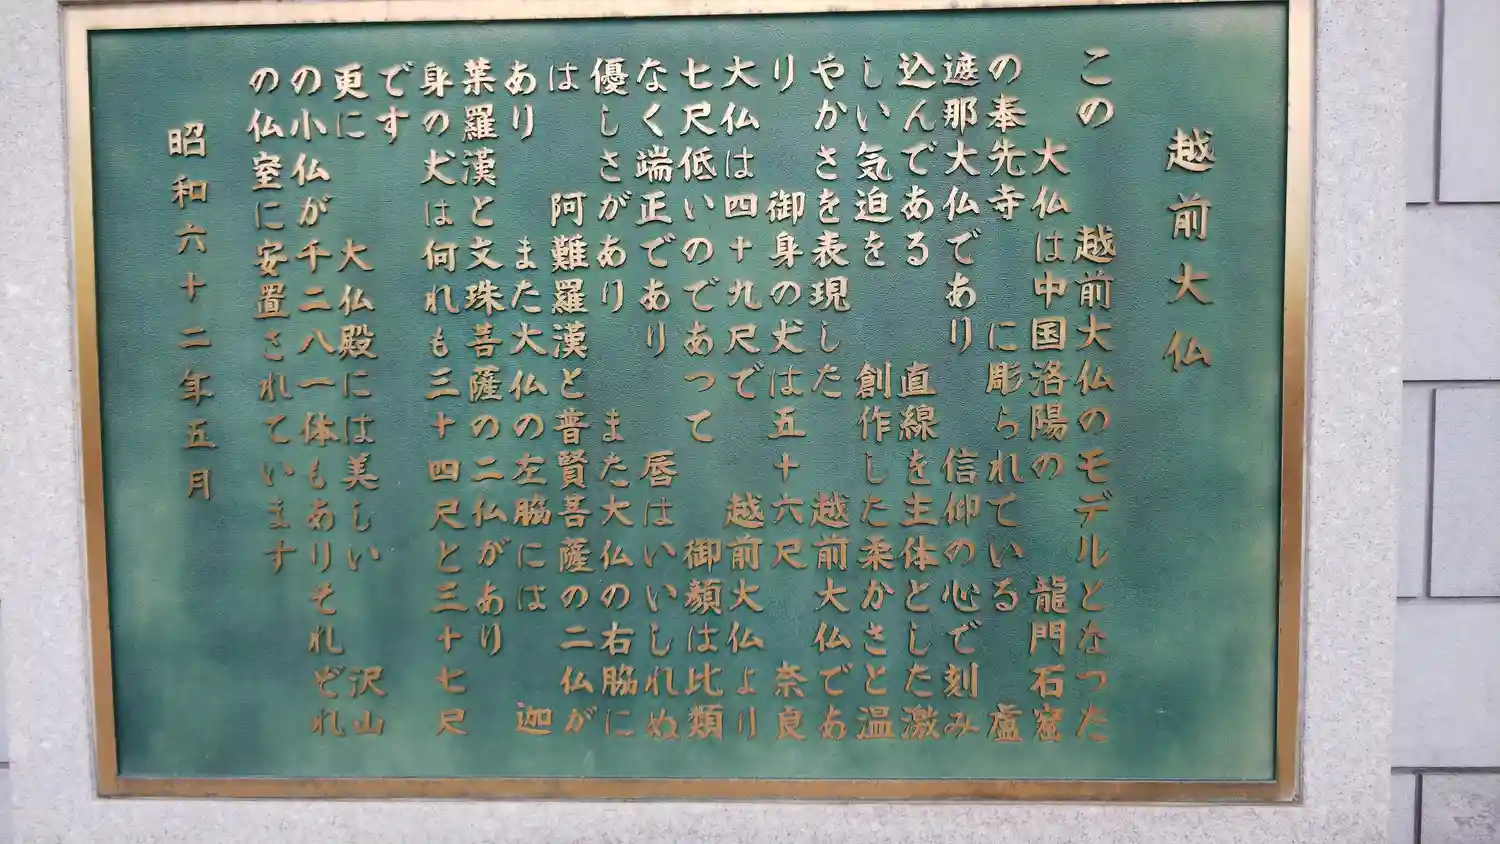 越前大仏
この　越前大仏のモデルとなつた
大仏は中国洛陽の　龍門石窟
の奉先寺　に彫られている　盧
遮那大仏であり　信仰の心で刻み
込んである　直線を主体とした激
しい気迫を　創作した柔かさと温
やかさを表現した　越前大仏であ
り　御身の丈は五十六尺　奈良
大仏は四十九尺で　越前大仏より
七尺低いのであつて　御顔は比類
なく端正であり　唇はいいしれぬ
優しさがあり　また大仏の右脇に
は　阿難羅漢と普賢菩薩の二仏が
あり　また大仏の左脇には　迦
葉羅漢と文珠菩薩の二仏があり
身の丈は何れも三十四尺と三十七尺
です
更に　大仏殿には美しい　沢山
の小仏が千二八一体もありそれぞれ
の仏室に安置されています
昭和六十二年五月